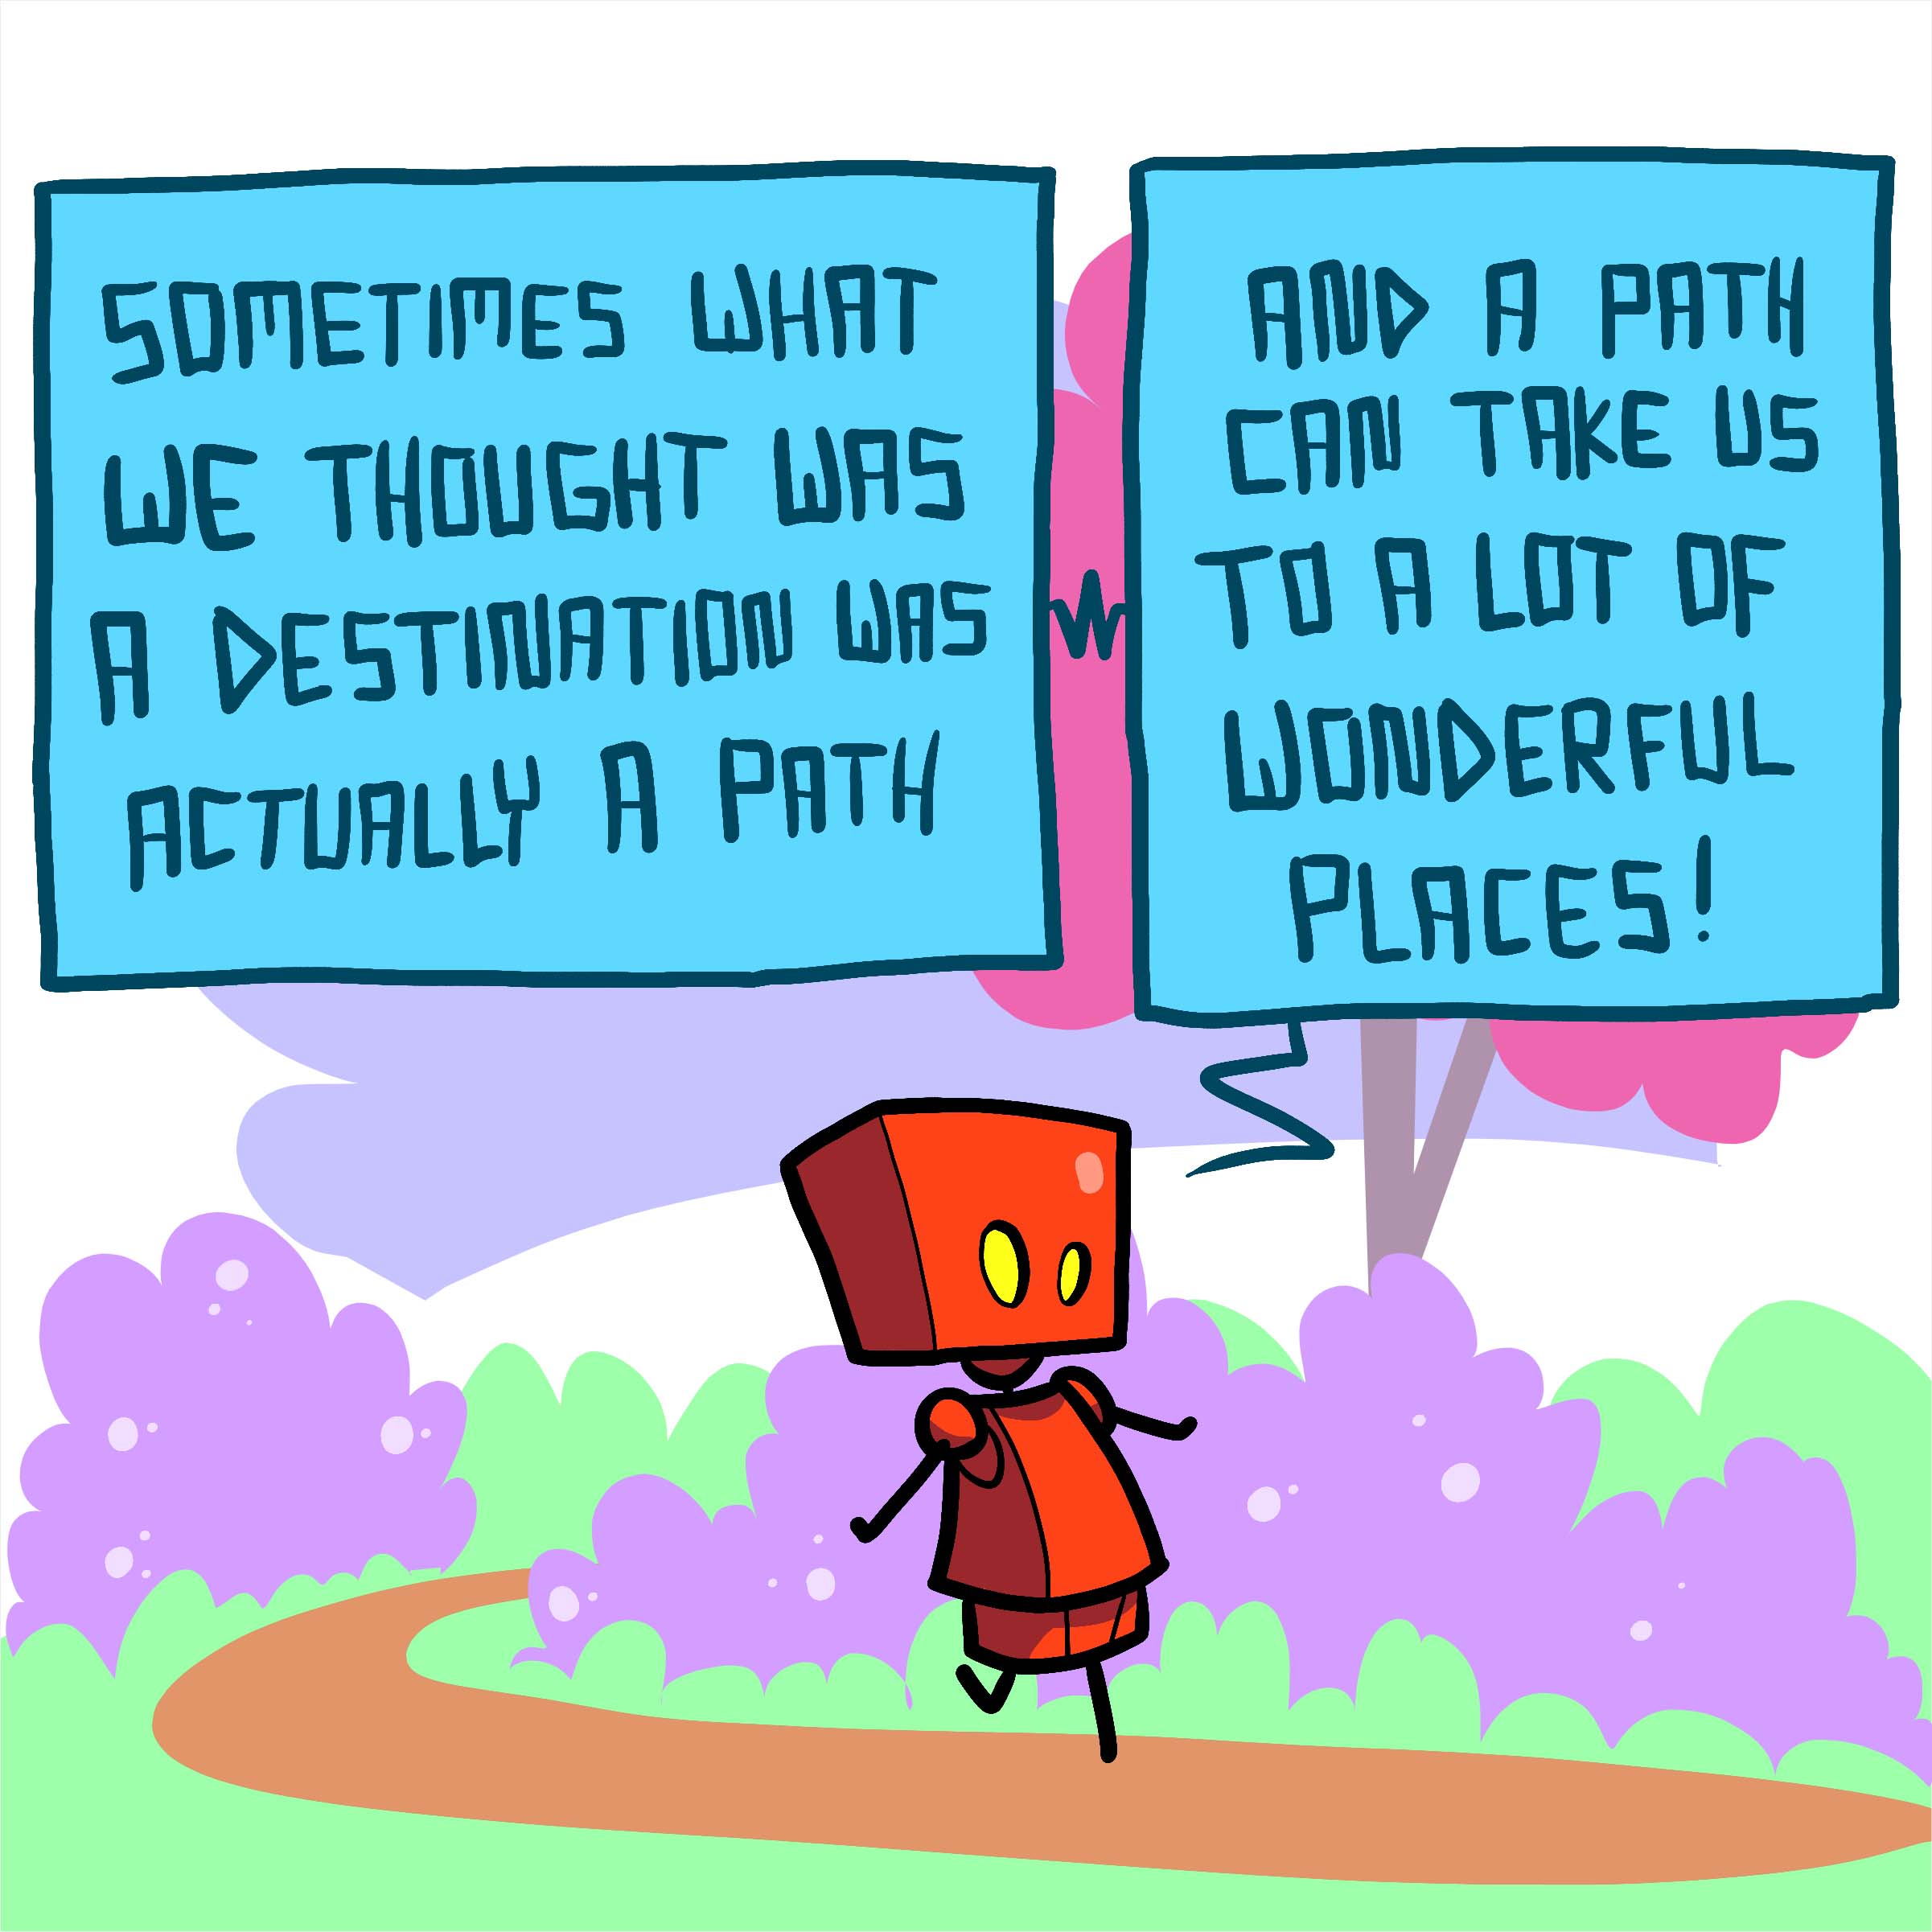 SOMETIMES WHAT
WE THOUGHT WAS
A DESTINATION WAS
ACTUALLY A PATH
AND A PATH
CAN TAKE US
TO A LOT OF
WONDERFUL
PLACES!